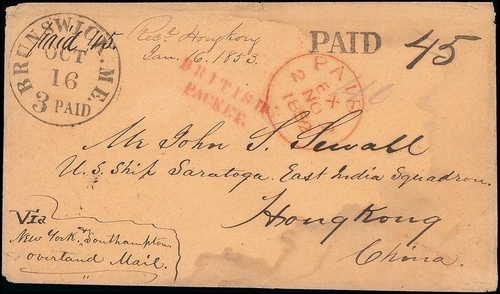 BRUNSWICK. ME.
OCT
16
3 PAID
Paid 45
Recd. Hongkong
Jan. 16. 1853.
PAID
45
BRITISH
PACKET.
PAID
EX
2 NO
1852
Mr John S. Sewall
U.S. Ship Saratoga. East India Squadron.
Hongkong
China.
Via
New York, & Southampton
overland Mail.